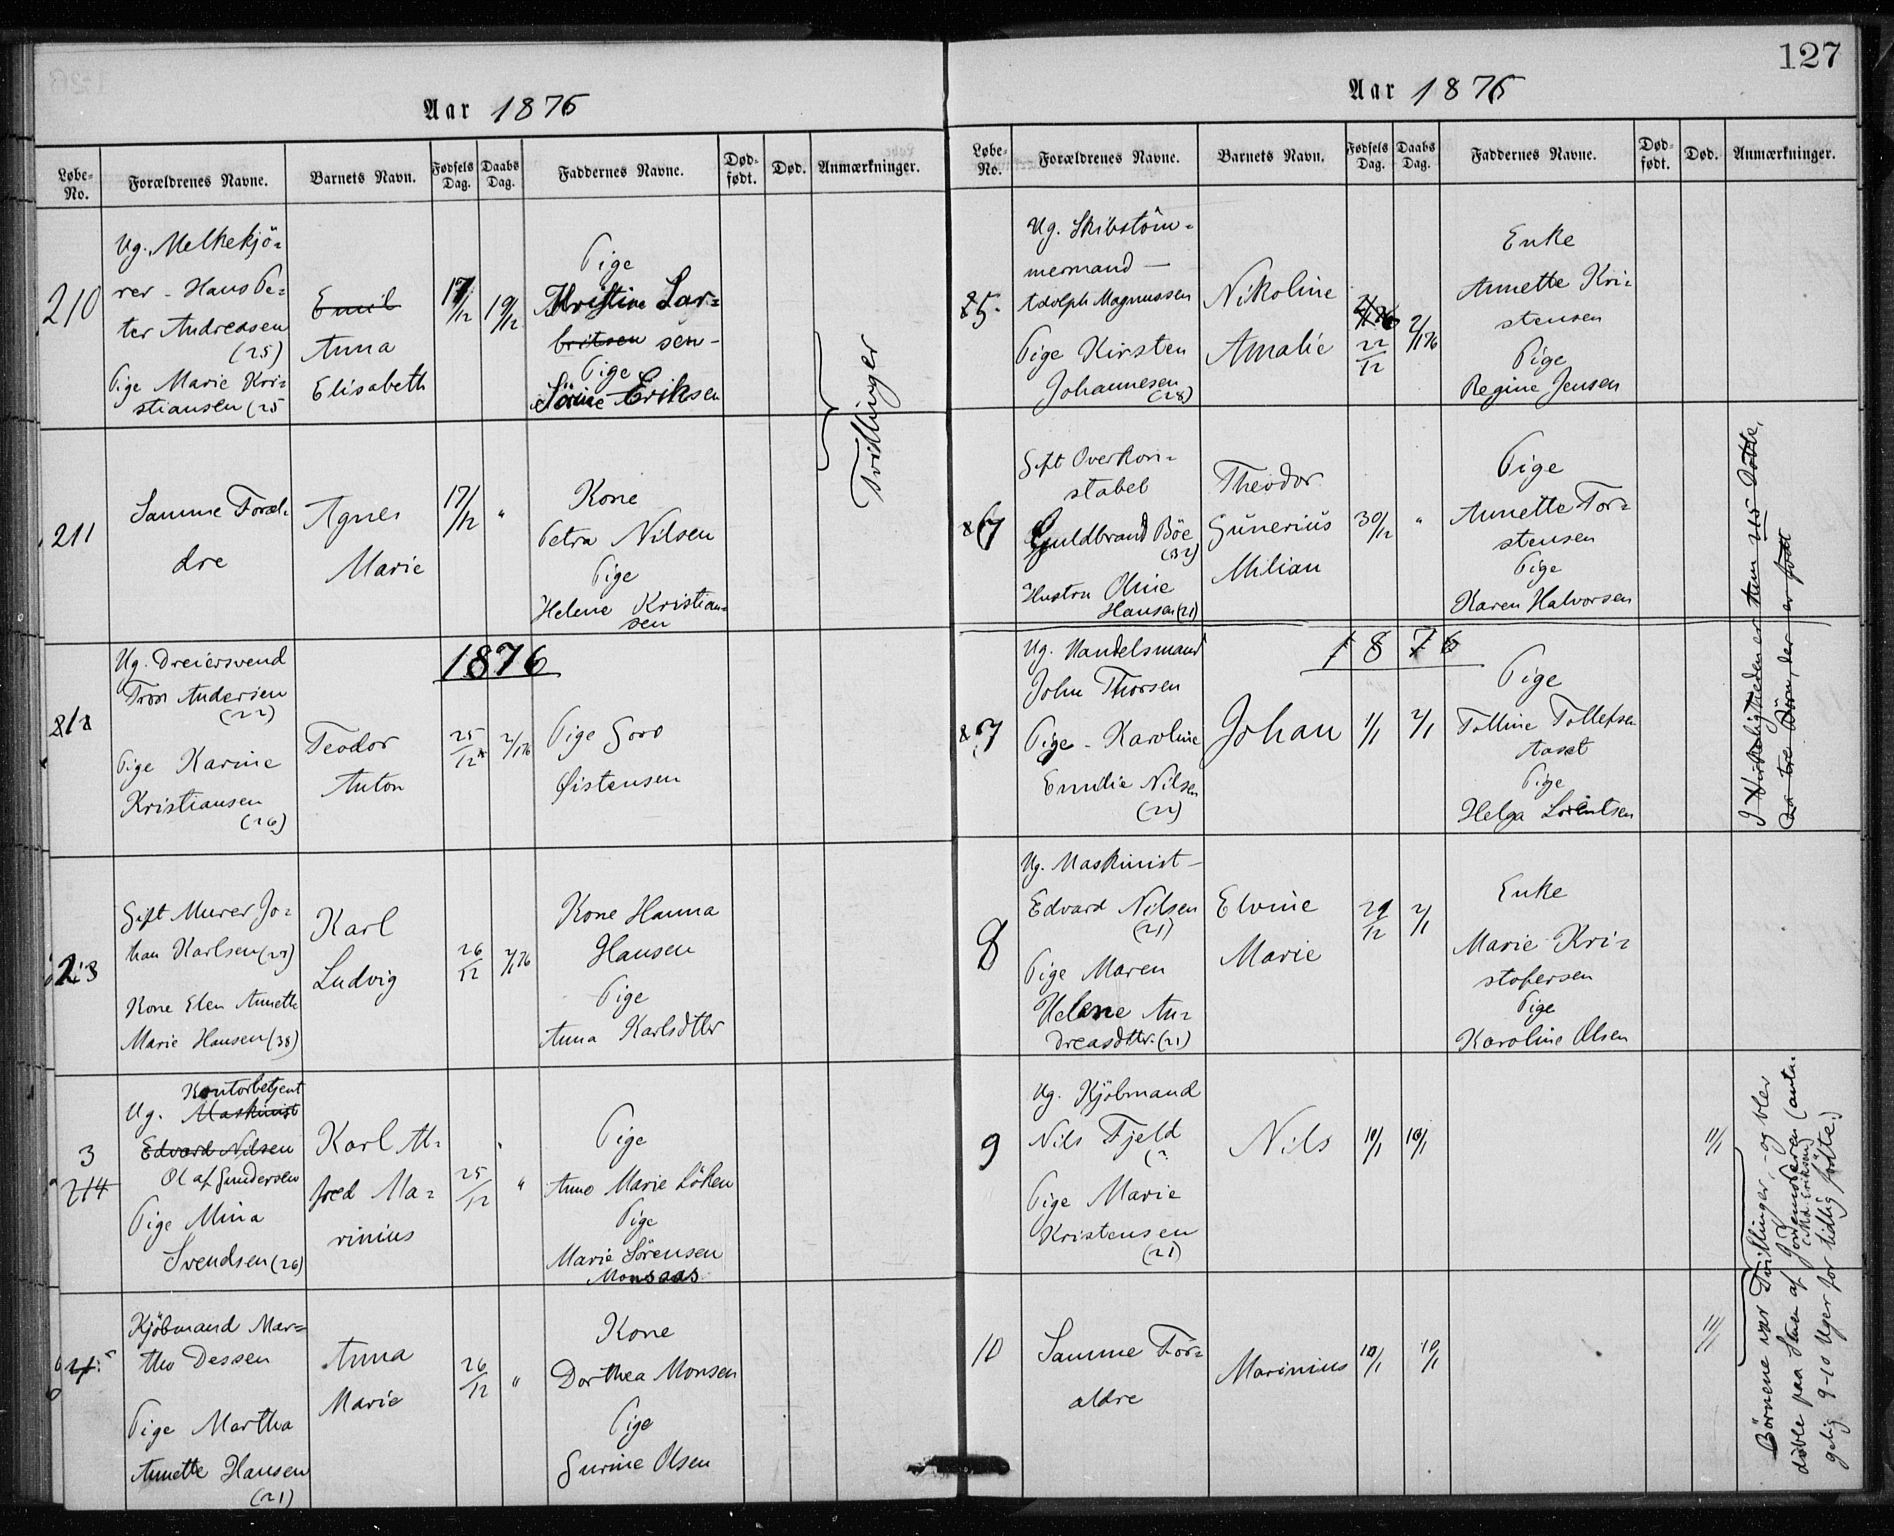 Aar 1876
Løbe-No. Forældrenes Navne. Barnets Navn. Fødsels Dag. Daabs Dag. Faddernes Navne. Død-født. Død. Anmærkninger.
210
Ug. Melkekjö-
rer - Hans Pe-
ter Andreasen
(25)
Pige Marie Kri-
stiansen (25
Emil
Anna
Elisabeth
17/12
19/12
Pige
Kristine Lar-
britsen sen-
Pige
Sörine Eriksen
Tvillinger
211
Samme Foræl-
dre
Agnes
Marie
17/12
"
Kone
Petra Nilsen
Pige
Helene Kristian-
sen
1876
Ug. Dreiersvend
Tron Andersen
(22)
Pige Karine
Kristiansen
(26)
Teodor
Anton
25/12
2/1 76
Pige Goro
Øistensen
213
Gift Murer Jo-
han Karlsen (27)
Kone Elen Annette
Marie Hansen (38)
Karl
Ludvig
26/12
2/1 76
Kone Hanna
Hansen
Pige
Anna Karlsdtter
3
214
Kontorbetjent
Ug. Maskinist
Edvard Nilsen
Olaf Gundersen
Pige Mina
Svendsen (26)
Karl Al-
fred Ma-
rinius
25/12
"
Pige
Anne Marie Löken
Pige
Marie Sörensen
Monsaas
Kjöbmand Mar-
tho Dessen
Pige Martha
Annette Hansen
(21)
Anna
Marie
26/12
"
Kone
Dorthea Monsen
Pige
Gurine Olsen
127
Aar 1876
Løbe-No. Forældrenes Navne. Barnets Navn. Fødsels Dag. Daabs Dag. Faddernes Navne. Død-født. Død. Anmærkninger.
5.
Ug. Skibstöm-
mermand -
Adolph Magnussen
Pige Kirsten
Johannesen
(28)
Nikoline
Amalie
22/12
2/1 76
Enke
Annette Kri-
stensen
Pige
Regine Jensen
6
Gift Overkon-
stabel
Guldbrand Böe
(32)
Hustru Oline
Hansen (21)
Theodor
Gunerius
Milian
30/12
"
Pige
Annette Tor-
stensen
Pige
Karen Halvorsen
I Virkeligheden er kun 215 födte,
da tre Börn, der er födt
1876
7
Ug. Handelsmand
John Thorsen
Pige - Karoline
Emilie Nilsen
(22)
Johan
1/1
2/1
Pige
Tolline Tollefsen
Aaset
Pige
Helga Lorentsen
8
Ug. Maskinist -
Edvard Nilsen
(21)
Pige Maren
Helene An-
dreasdtter (21)
Elvine
Marie
29/12
2/1
Enke
Marie Kri-
stofersen
Pige
Karoline Olsen
9
Ug. Kjöbmand
Nils Fjeld
(?
Pige Marie
Kristensen
(21)
Nils
10/1
10/1
11/1
10
Samme For-
ældre
Marinius
10/1
10/1
11/1
Börnene var Tvillinger, - og blev
döbte paa Stuen af Jordemoderen (anta-
(Md. Eriksen)
gelig 9-10 Uger for tidlig fötte.)